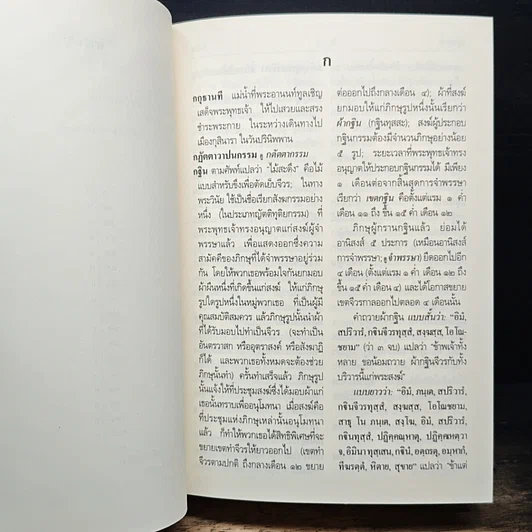 ก
กกุธานที แม่น้ำที่พระอานนท์ทูลเชิญ
เสด็จพระพุทธเจ้า ให้ไปเสวยและสรง
ชำระพระกาย ในระหว่างเดินทางไป
เมืองกุสินารา ในวันปรินิพพาน
กฏัตตาวาปนกรรม ดู กตัตตากรรม
กฐิน ตามศัพท์แปลว่า “ไม้สะดึง” คือไม้
แบบสำหรับขึงเพื่อตัดเย็บจีวร; ในทาง
พระวินัย ใช้เป็นชื่อเรียกสังฆกรรมอย่าง
หนึ่ง (ในประเภทญัตติทุติยกรรม) ที่
พระพุทธเจ้าทรงอนุญาตแก่สงฆ์ผู้จำ
พรรษาแล้ว เพื่อแสดงออกซึ่งความ
สามัคคีของภิกษุที่ได้จำพรรษาอยู่ร่วม
กัน โดยให้พวกเธอพร้อมใจกันยกมอบ
ผ้าผืนหนึ่งที่เกิดขึ้นแก่สงฆ์ ให้แก่ภิกษุ
รูปใดรูปหนึ่งในหมู่พวกเธอ ที่เป็นผู้มี
คุณสมบัติสมควร แล้วภิกษุรูปนั้นนำผ้า
ที่ได้รับมอบไปทำเป็นจีวร (จะทำเป็น
อันตรวาสก หรืออุตราสงค์ หรือสังฆาฏิ
ก็ได้ และพวกเธอทั้งหมดจะต้องช่วย
ภิกษุนั้นทำ) ครั้นทำเสร็จแล้ว ภิกษุรูป
นั้นแจ้งให้ที่ประชุมสงฆ์ซึ่งได้มอบผ้าแก่
เธอนั้นทราบเพื่ออนุโมทนา เมื่อสงฆ์คือ
ที่ประชุมแห่งภิกษุเหล่านั้นอนุโมทนา
แล้ว ก็ทำให้พวกเธอได้สิทธิพิเศษที่จะ
ขยายเขตทำจีวรให้ยาวออกไป (เขตทำ
จีวรตามปกติ ถึงกลางเดือน ๑๒ ขยาย
ต่อออกไปถึงกลางเดือน ๔); ผ้าที่สงฆ์
ยกมอบให้แก่ภิกษุรูปหนึ่งนั้นเรียกว่า
ผ้ากฐิน (กฐินทุสสะ); สงฆ์ผู้ประกอบ
กฐินกรรมต้องมีจำนวนภิกษุอย่างน้อย
๕ รูป; ระยะเวลาที่พระพุทธเจ้าทรง
อนุญาตให้ประกอบกฐินกรรมได้ มีเพียง
๑ เดือนต่อจากสิ้นสุดการจำพรรษา
เรียกว่า เขตกฐิน คือตั้งแต่แรม ๑ ค่ำ
เดือน ๑๑ ถึง ขึ้น ๑๕ ค่ำ เดือน ๑๒
ภิกษุผู้กรานกฐินแล้ว ย่อมได้
อานิสงส์ ๕ ประการ (เหมือนอานิสงส์
การจำพรรษา; ดู จำพรรษา) ยืดออกไปอีก
๔ เดือน (ตั้งแต่แรม ๑ ค่ำ เดือน ๑๒ ถึง
ขึ้น ๑๕ ค่ำ เดือน ๔) และได้โอกาสขยาย
เขตจีวรกาลออกไปตลอด ๔ เดือนนั้น
คำถวายผ้ากฐิน แบบสั้นว่า: “อิมํ,
สปริวารํ, กฐินจีวรทุสฺสํ, สงฺฆสฺส, โอโณ-
ชยาม” (ว่า ๓ จบ) แปลว่า “ข้าพเจ้าทั้ง
หลาย ขอน้อมถวาย ผ้ากฐินจีวรกับทั้ง
บริวารนี้แก่พระสงฆ์”
แบบยาวว่า: “อิมํ, ภนฺเต, สปริวารํ,
กฐินจีวรทุสฺสํ, สงฺฆสฺส, โอโณชยาม,
สาธุ โน ภนฺเต, สงฺโฆ, อิมํ, สปริวารํ,
กฐินทุสฺสํ, ปฏิคฺคณฺหาตุ, ปฏิคฺคเหตฺวา
จ, อิมินาทุสฺเสน, กฐินํ, อตฺถรตุ, อมฺหากํ,
ทีฆรตฺตํ, หิตาย, สุขาย” แปลว่า “ข้าแต่